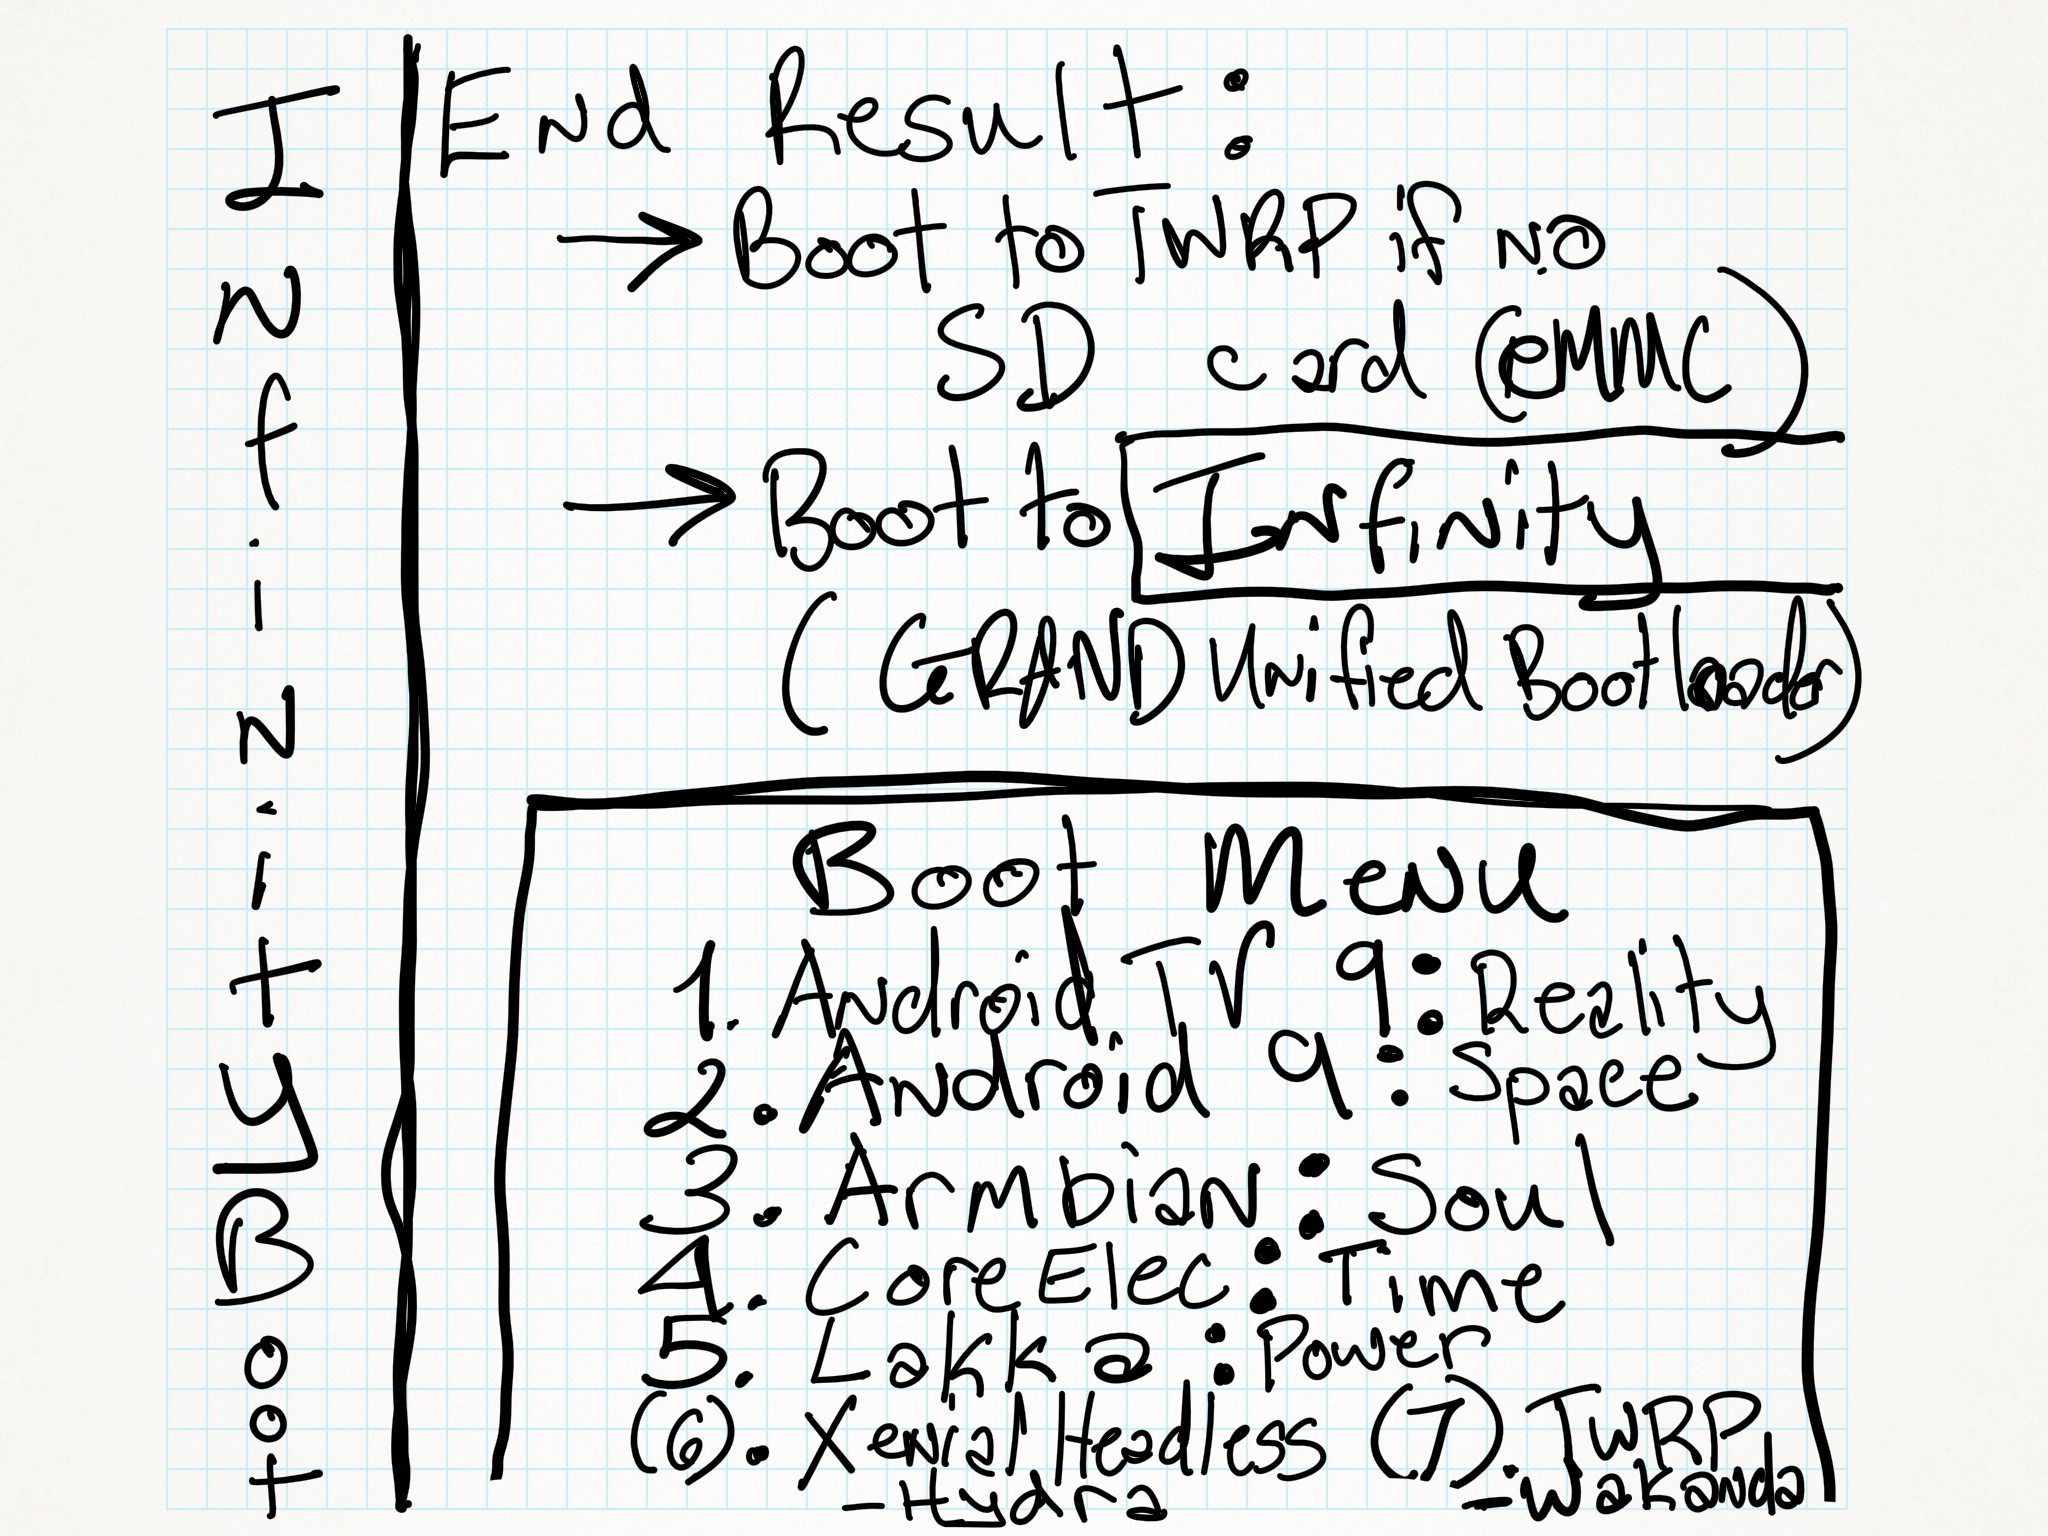 InfinityBoot
End Result:
→ Boot to TWRP if no
SD card (eMMC)
→ Boot to Infinity
(GRAND Unified Bootloader)
Boot Menu
1. Android TV 9: Reality
2. Android 9: Space
3. Armbian: Soul
4. CoreElec: Time
5. Lakka: Power
(6). Xenial Headless (7). TWRP
- Hydra - Wakanda